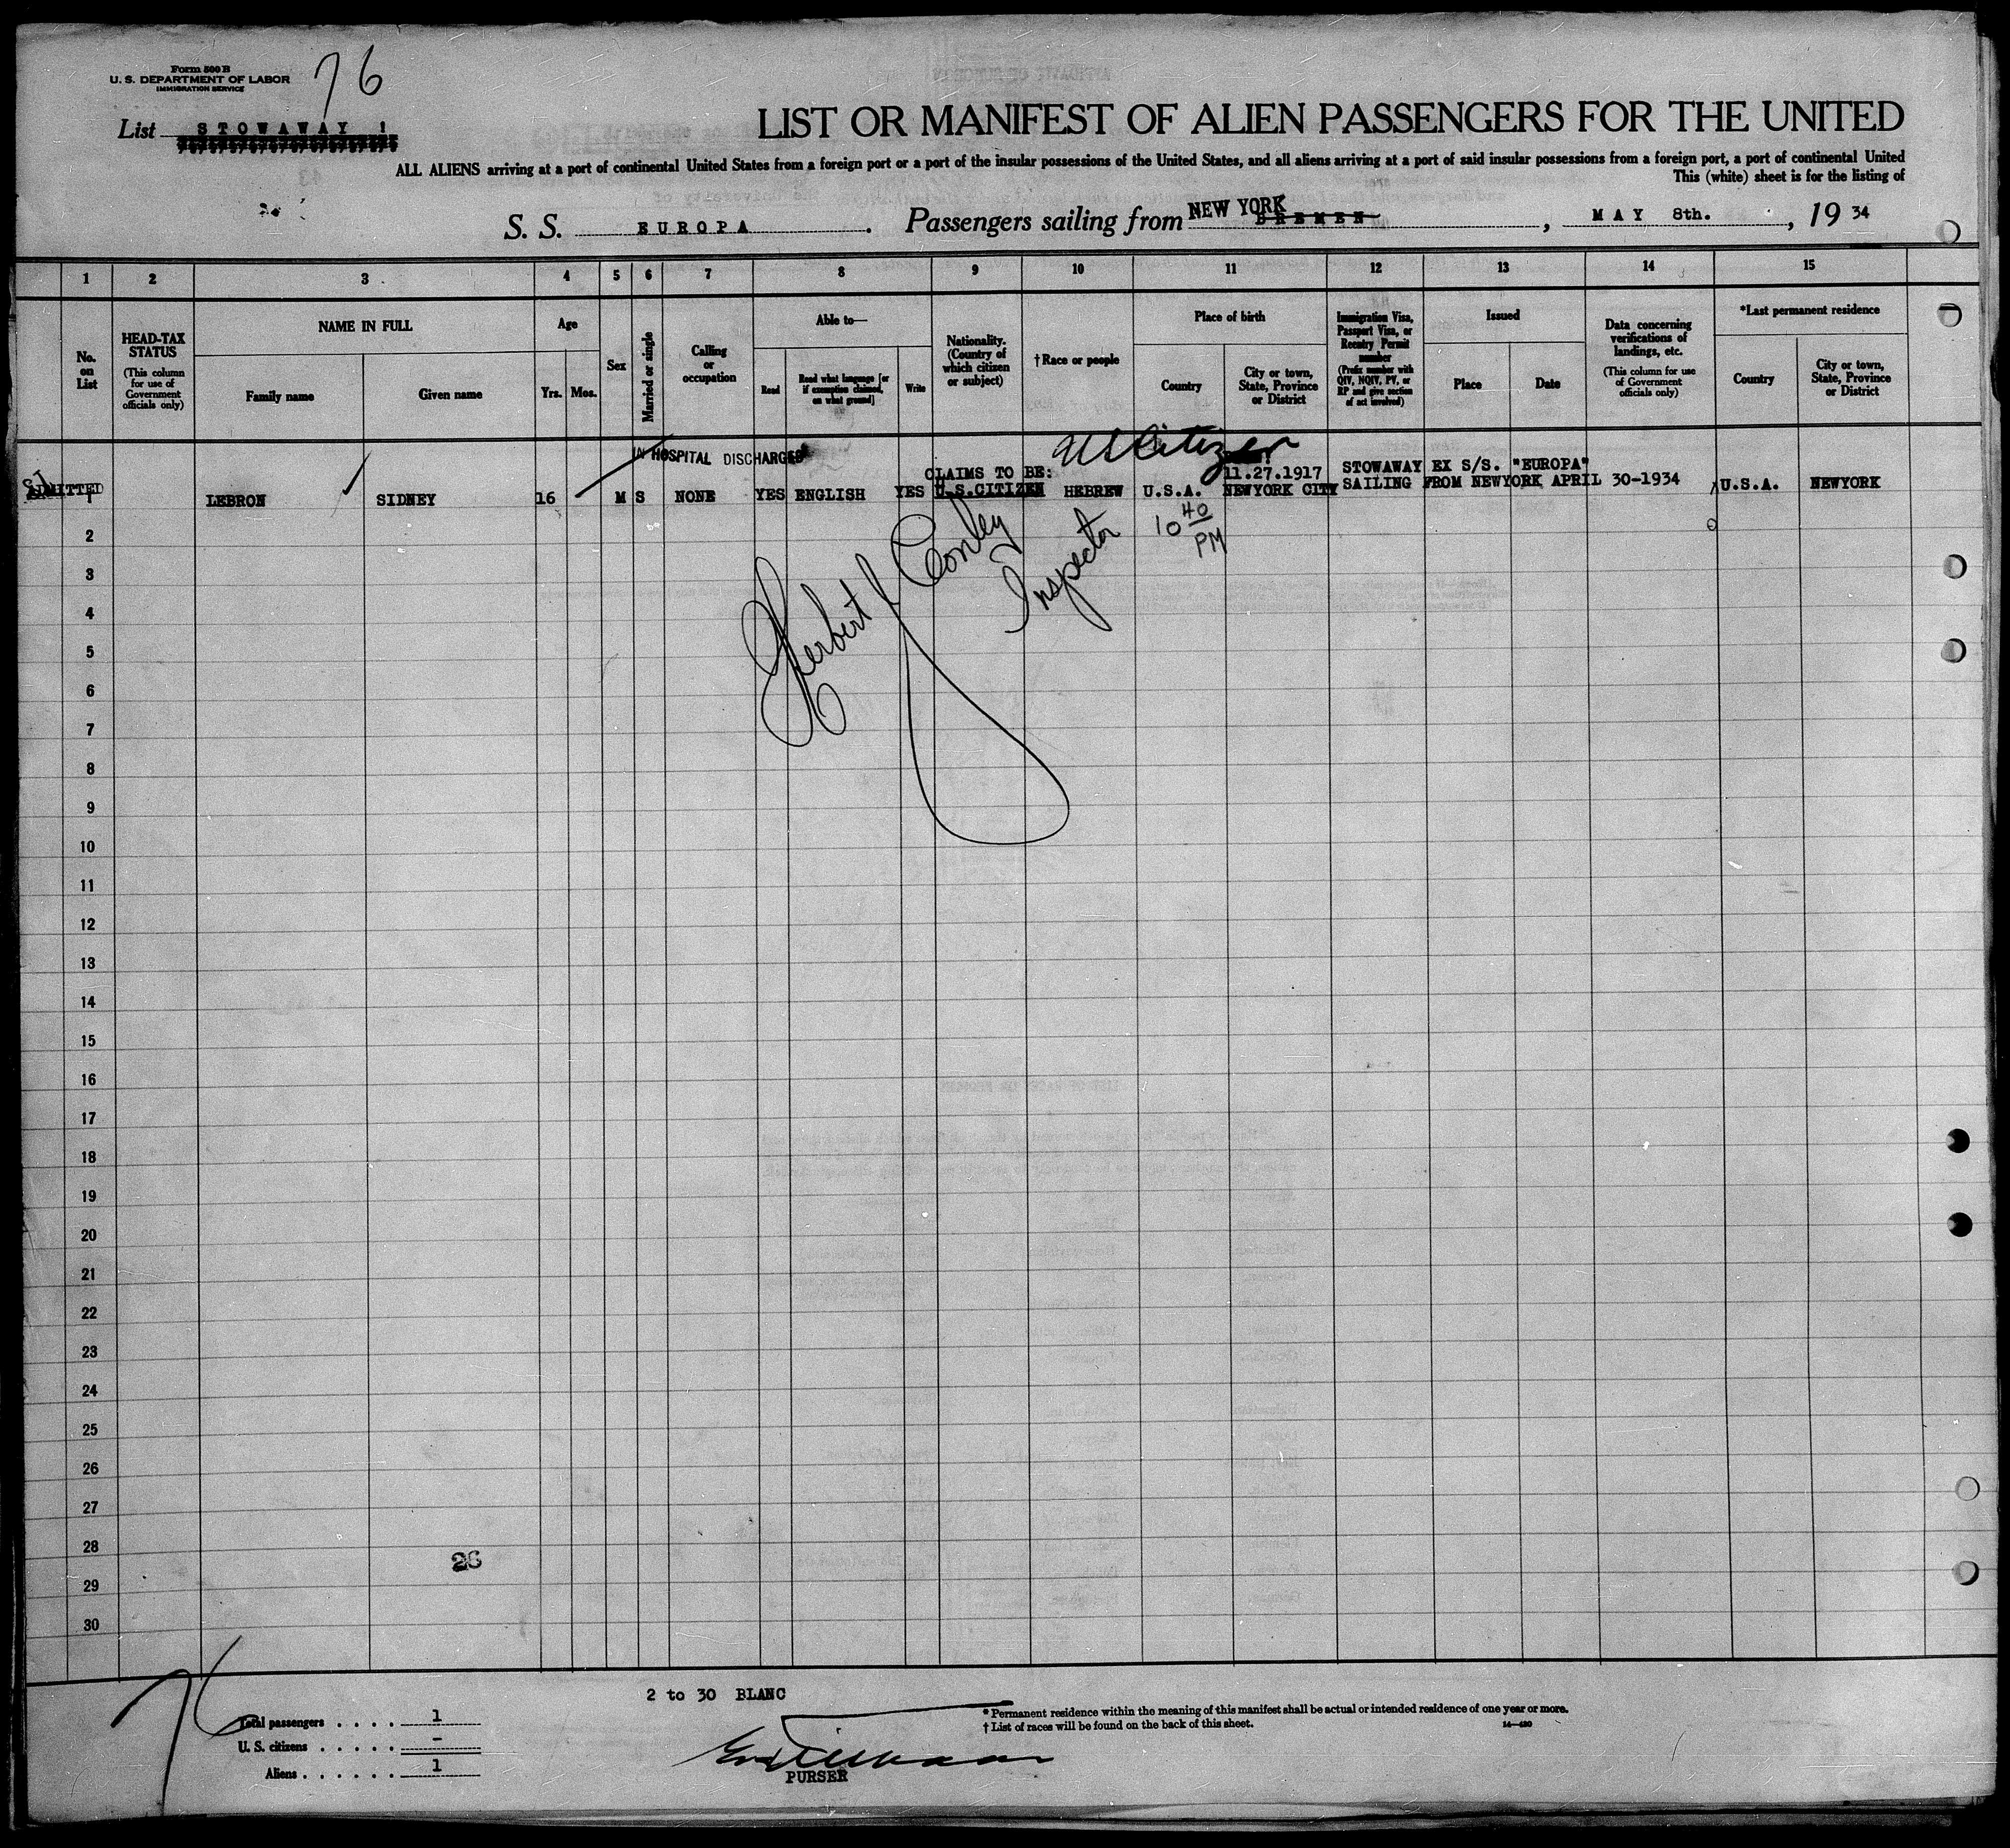 Form 500 B
U. S. DEPARTMENT OF LABOR
IMMIGRATION SERVICE
76
List STOWAWAY !
LIST OR MANIFEST OF ALIEN PASSENGERS FOR THE UNITED
ALL ALIENS arriving at a port of continental United States from a foreign port or a port of the insular possessions of the United States, and all aliens arriving at a port of said insular possessions from a foreign port, a port of continental United
This (white) sheet is for the listing of
S. S. EUROPA. Passengers sailing from NEW YORK BREMEN, MAY 8th., 19 34
1 2 3 4 5 6 7 8 9 10 11 12 13 14 15
No. on List
HEAD-TAX STATUS
(This column for use of Government officials only)
NAME IN FULL
Family name
Given name
Age
Yrs. Mos.
Sex
Married or single
Calling or occupation
Able to—
Read
Read what language [or if exemption claimed, on what ground]
Write
Nationality. (Country of which citizen or subject)
† Race or people
Place of birth
Country
City or town, State, Province or District
Immigration Visa, Passport Visa, or Reentry Permit number
(Prefix number with QIV, NQIV, PV, or RP and give section of act involved)
Issued
Place
Date
Data concerning verifications of landings, etc.
(This column for use of Government officials only)
*Last permanent residence
Country
City or town, State, Province or District
IN HOSPITAL DISCHARGED
US Citizen
CLAIMS TO BE: 11.27.1917 STOWAWAY EX S/S. "EUROPA"
ADMITTED 1 LEBRON SIDNEY 16 M S NONE YES ENGLISH YES U.S.CITIZEN HEBREW U.S.A. NEWYORK CITY SAILING FROM NEWYORK APRIL 30-1934 U.S.A. NEWYORK
10 40 PM
Herbert L Conley
Inspector
2
3
4
5
6
7
8
9
10
11
12
13
14
15
16
17
18
19
20
21
22
23
24
25
26
27
28
26
29
30
2 to 30 BLANC
76
Total passengers . . . . 1
U. S. citizens . . . . . -
Aliens . . . . . . 1
* Permanent residence within the meaning of this manifest shall be actual or intended residence of one year or more.
† List of races will be found on the back of this sheet.
14—420
PURSER